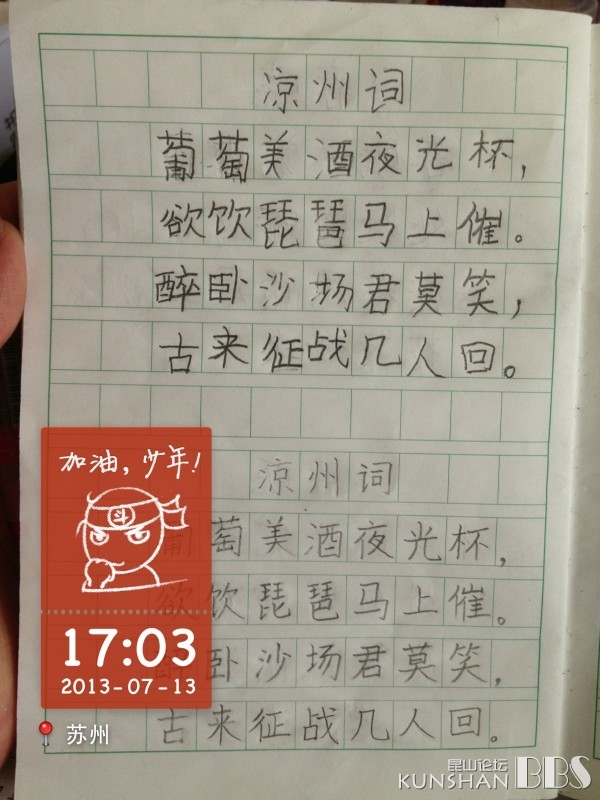 凉州词
葡萄美酒夜光杯，
欲饮琵琶马上催。
醉卧沙场君莫笑，
古来征战几人回。
凉州词
葡萄美酒夜光杯，
欲饮琵琶马上催。
醉卧沙场君莫笑，
古来征战几人回。
加油，少年！
斗
17:03
2013-07-13
苏州
昆山论坛
KUNSHAN BBS